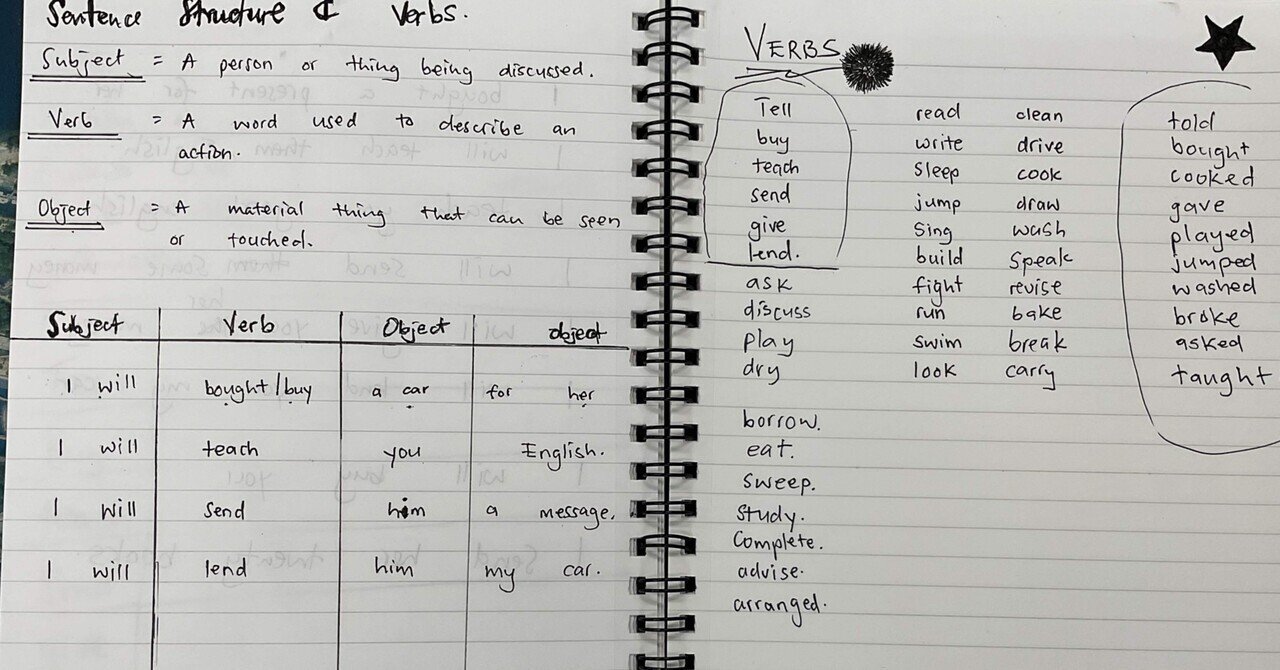 Sentence Structure & Verbs.
Subject = A person or thing being discussed.
Verb = A word used to describe an
action.
Object = A material thing that can be seen
or touched.
Subject Verb Object object
I will bought/buy a car for her
I will teach you English.
I will send him a message.
I will lend him my car.
VERBS
Tell read clean told
buy write drive bought
teach sleep cook cooked
send jump draw gave
give sing wash played
lend. build speak jumped
ask fight revise washed
discuss run bake broke
play swim break asked
dry look carry taught
borrow.
eat.
sweep.
study.
Complete.
advise.
arranged.